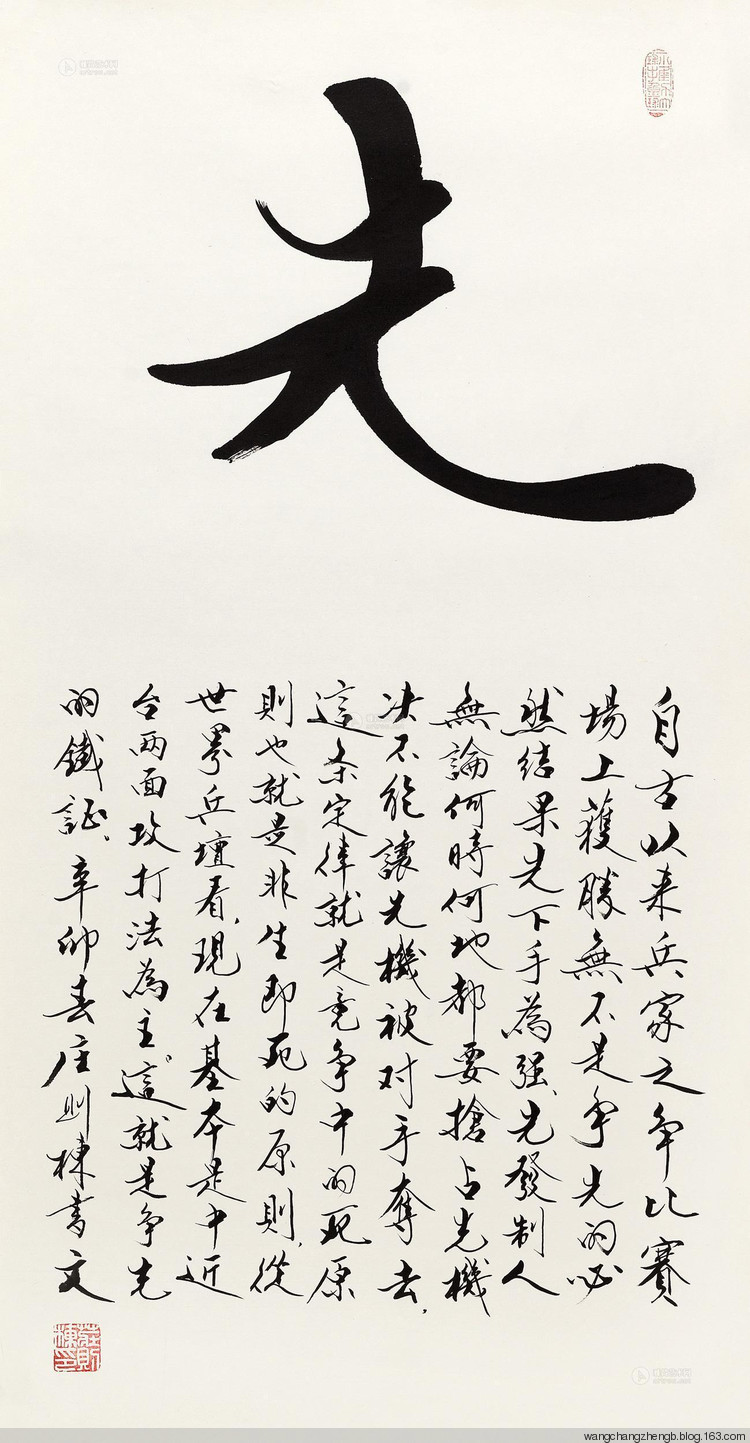 先
自古以来兵家之争比赛
場上獲勝無不是争先的必
然结果先下手為强、先發制人
無論何時何地都要搶占先機
决不能讓先機被对手奪去，
這条定律就是竞争中的死原
則也就是非生即死的原則，從
世界兵壇看，現在基本是中近
台两面攻打法為主。這就是争先
的鐵証、辛卯春庄則棟書文
莊則棟印
wangchangzhengb.blog.163.com